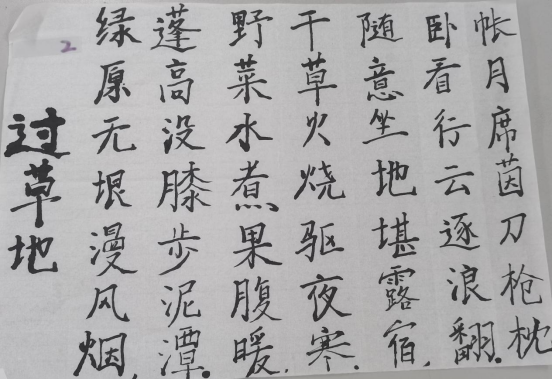 2
过草地
绿原无垠漫风烟,
蓬高没膝步泥潭。
野菜水煮果腹暖,
干草火烧驱夜寒。
随意坐地堪露宿,
卧看行云逐浪翻。
帐月席茵刀枪枕